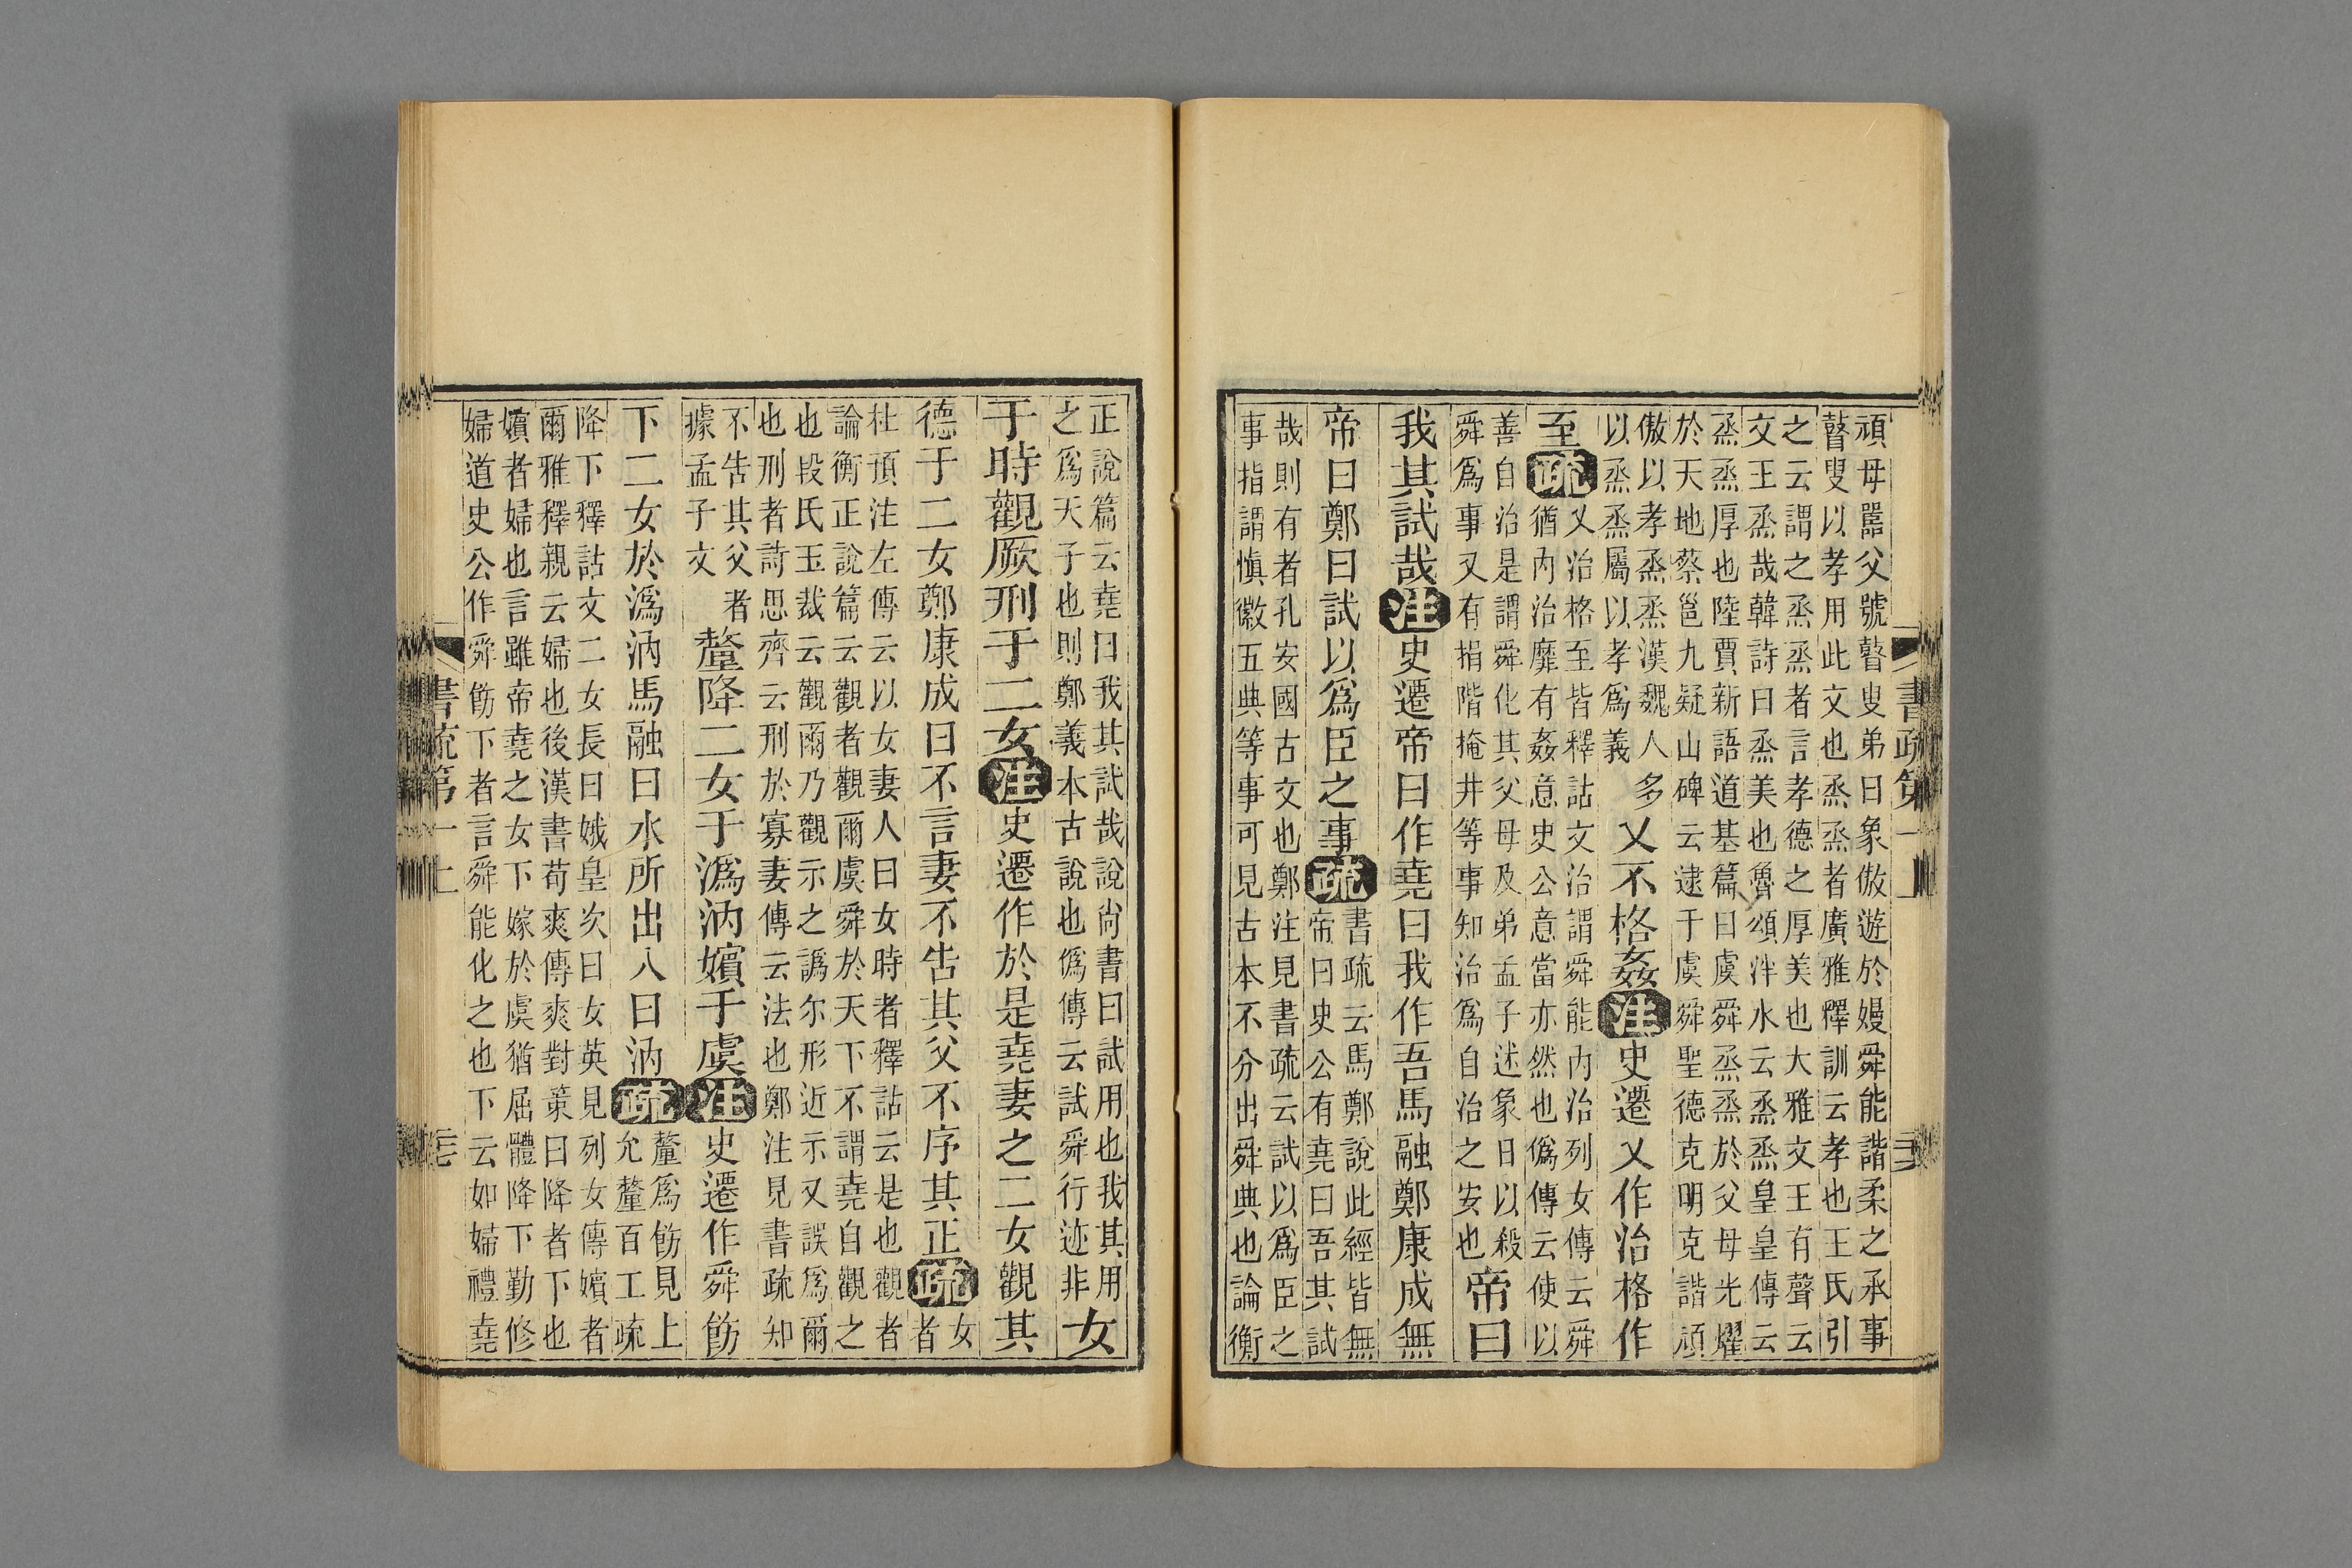 書疏第一上
頑母嚚父號瞽叟弟曰象傲遊於嫚舜能諧柔之承事
瞽叟以孝用此文也烝烝者廣雅釋訓云孝也王氏引
之云謂之烝烝者言孝德之厚美也大雅文王有聲云
文王烝哉韓詩曰烝美也魯頌泮水云烝烝皇皇傳云
烝烝厚也陸賈新語道基篇曰虞舜烝烝於父母光燿
於天地蔡邕九疑山碑云逮于虞舜聖德克明克諧頑
傲以孝烝烝漢魏人多
以烝烝屬以孝爲義
乂不格姦注史遷乂作治格作
至疏
乂治格至皆釋詁文治謂舜能內治列女傳云舜
猶內治靡有姦意史公意當亦然也僞傳云使以
善自治是謂舜化其父母及弟孟子述象日以殺
舜爲事又有捐階掩井等事知治爲自治之安也
帝曰
我其試哉注史遷帝曰作堯曰我作吾馬融鄭康成無
帝曰鄭曰試以爲臣之事疏
書疏云馬鄭說此經皆無
帝曰史公有堯曰吾其試
哉則有者孔安國古文也鄭注見書疏云試以爲臣之
事指謂愼徽五典等事可見古本不分出舜典也論衡
正說篇云堯曰我其試哉說尚書曰試用也我其用
之爲天子也則鄭義本古說也僞傳云試舜行迹非
女
于時觀厥刑于二女注史遷作於是堯妻之二女觀其
德于二女鄭康成曰不言妻不告其父不序其正疏
女
者
杜預注左傳云以女妻人曰女時者釋詁云是也觀者
論衡正說篇云觀者觀爾虞舜於天下不謂堯自觀之
也段氏玉裁云觀爾乃觀示之譌尔形近示又誤爲爾
也刑者詩思齊云刑於寡妻傳云法也鄭注見書疏知
不告其父者
據孟子文
釐降二女于潙汭嬪于虞注史遷作舜飭
下二女於潙汭馬融曰水所出入曰汭疏
釐爲飭見上
允釐百工疏
降下釋詁文二女長曰娥皇次曰女英見列女傳嬪者
爾雅釋親云婦也後漢書荀爽傳爽對策曰降者下也
嬪者婦也言雖帝堯之女下嫁於虞猶屈體降下勤修
婦道史公作舜飭下者言舜能化之也下云如婦禮堯
書疏第一上